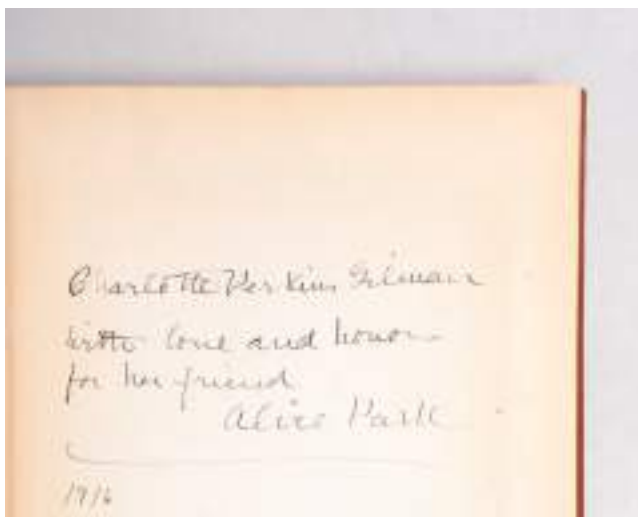 Charlotte Perkins Gilman
with love and honor
for her friend
Alice Park
1916